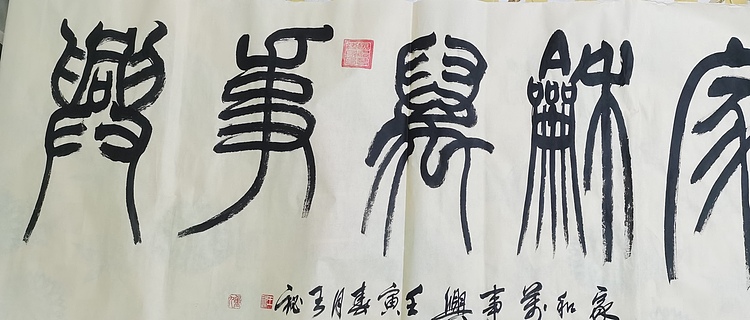 家龢萬事興
家和萬事興 壬寅春月王